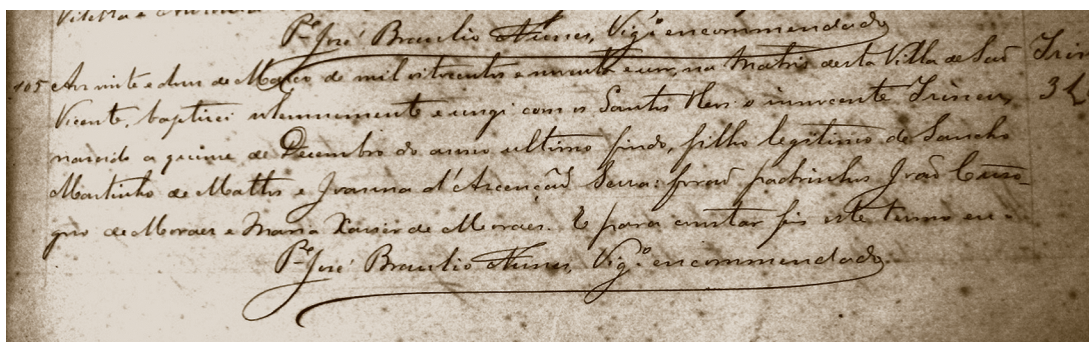 Pe. José Braulio Nunes, Vigº encommendado
105 Aos vinte e dous de Março de mil oitocentos e noventa e um, na Matriz desta Villa de São
Vicente, baptizei solemnemente e ungi com os Santos Oleos o innocente Irineu,
nascido a quinze de Dezembro do anno ultimo findo, filho legitimo de Sancho
Martinho de Mattos e Joanna d'Ascenção Senra: forão padrinhos João
de Moraes e Maria Xavier de Moraes. E para constar fiz este termo eu.
Pe. José Braulio Nunes, Vigº encommendado.